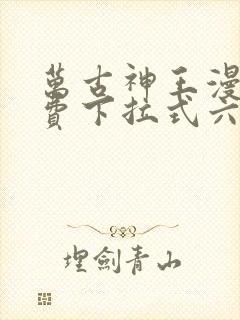 萬古神王漫
費下拉式六
埋劍青山